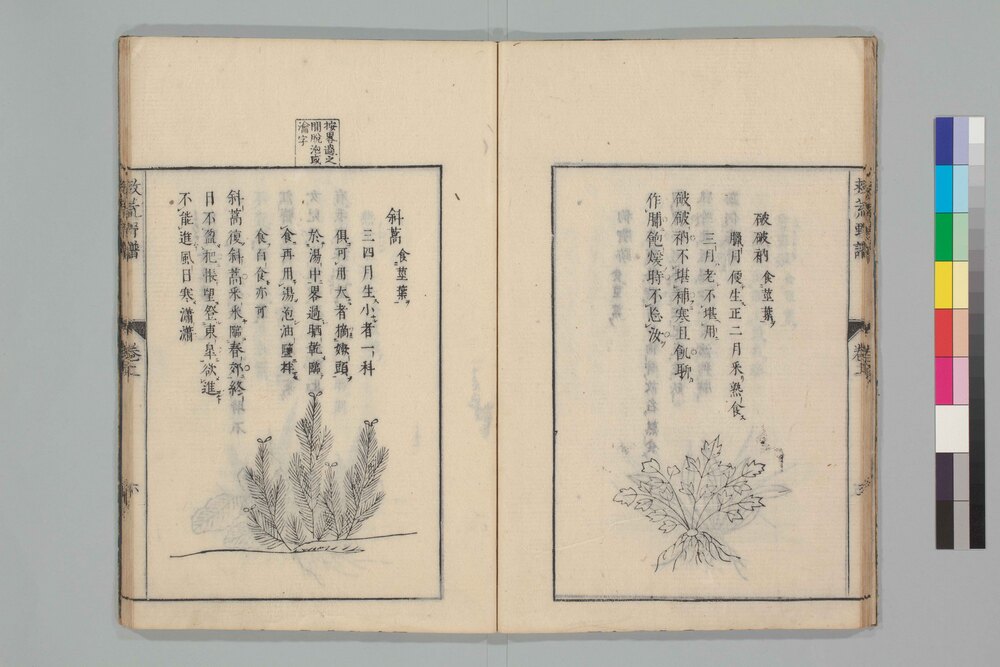 救荒野譜
破破衲 食莖葉
臘月便生正二月采熟食
三月老不堪用
破破衲不堪補寒且飢聊
作脯飽煖時不忘汝
按畧過之
間脫泡或
瀹字
斜蒿 食莖葉
三四月生小者一科
俱可用大者摘嫩頭
於湯中畧過晒乾臨
食再用湯泡油鹽拌
食白食亦可
斜蒿復斜蒿采采臨春郊終
日不盈把悵望登東皐欲進
不能進風日寒瀟瀟
救荒野譜